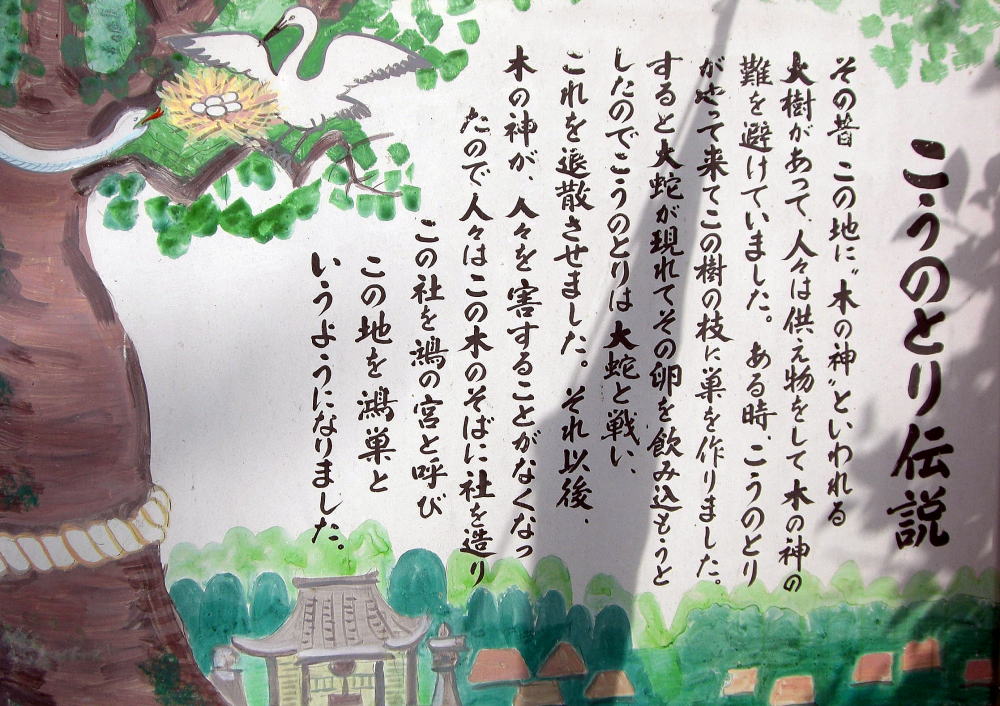 こうのとり伝説
その昔 この地に〝木の神〟といわれる
大樹があって、人々は供え物をして木の神の
難を避けていました。ある時、こうのとり
が地って来てこの樹の枝に巣を作りました。
すると大蛇が現れてその卵を飲み込もうと
したのでこうのとりは大蛇と戦い、
これを退散させました。それ以後、
木の神が、人々を害することがなくなっ
たので人々はこの木のそばに社を造り
この社を鴻の宮と呼び
この地を鴻巣と
いうようになりました。